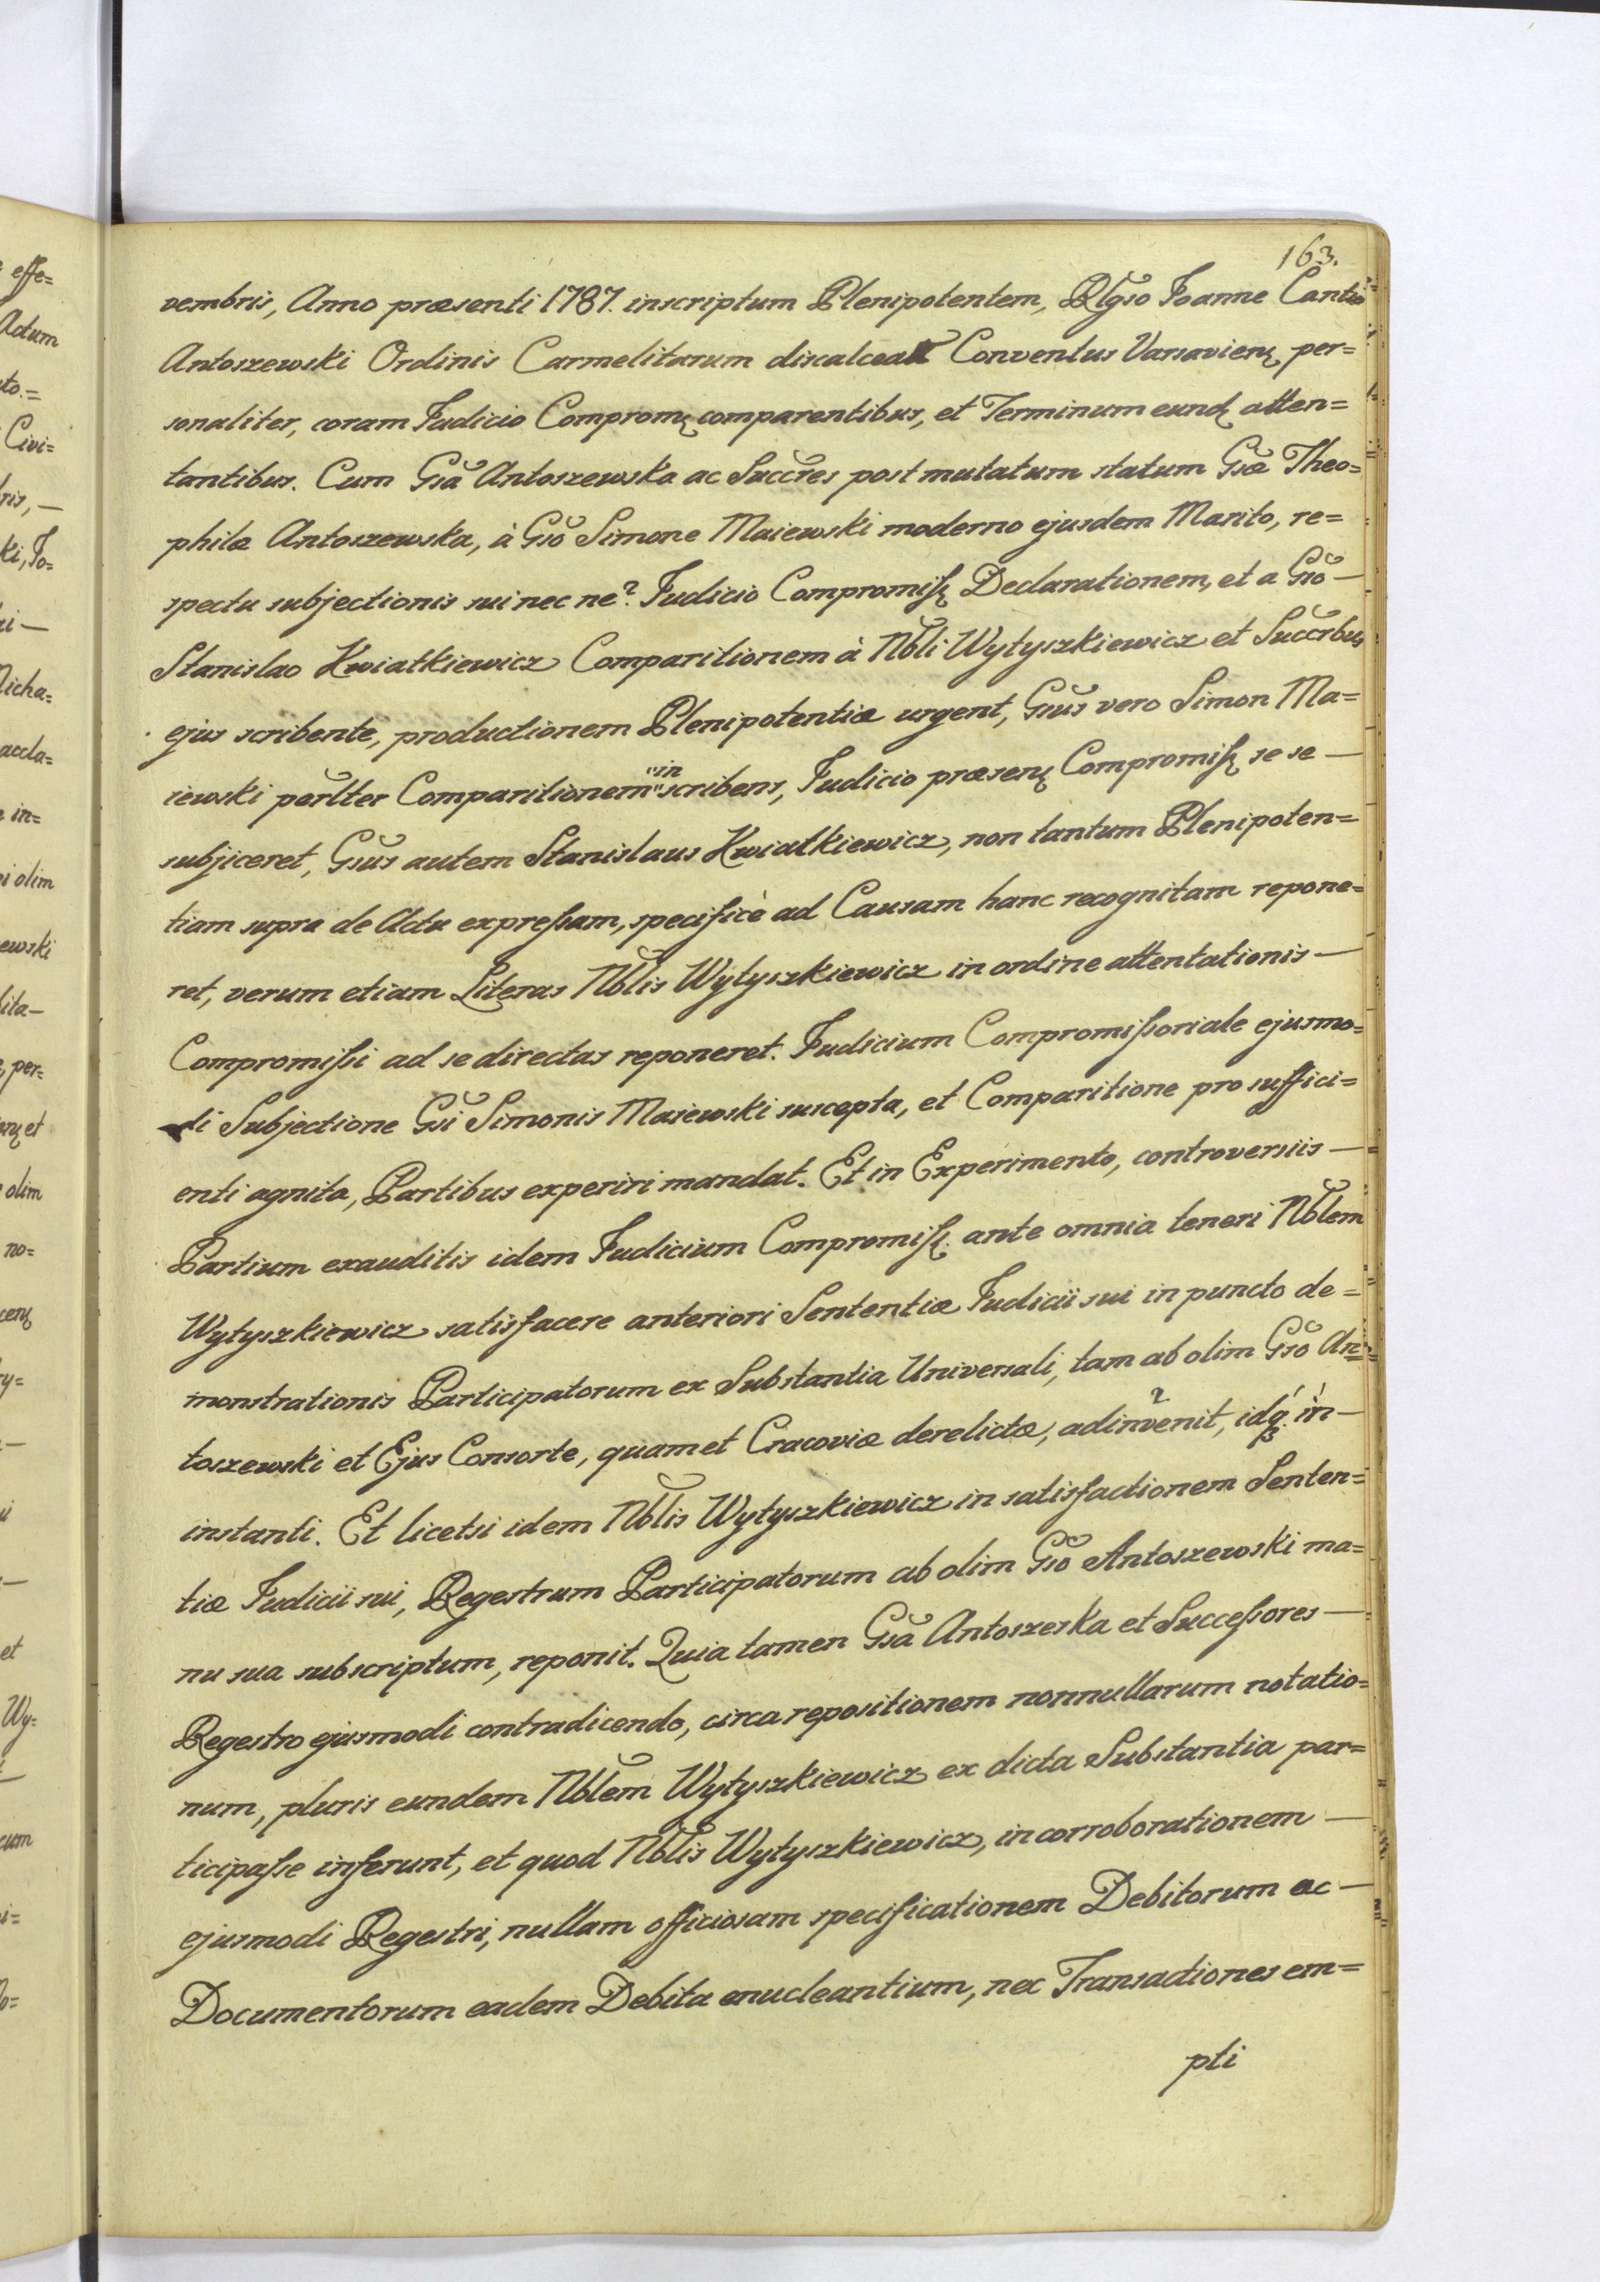 163.
vembris, Anno præsenti 1787. inscriptum Plenipotentem, Rlgso Joanne Cantio
Antoszewski Ordinis Carmelitarum discalceat Conventus Varsavienς per=
sonaliter, coram Judicio Compromς comparentibus, et Terminum eundς atten=
tantibus. Cum Gsã Antoszewska ac Succres post mutatum statum Gsæ Theo=
philæ Antoszewska, à Gsõ Simone Maiewski moderno ejusdem Marito, re=
spectu subjectionis sui nec ne? Judicio Compromiſsς Declarationem, et a Gsõ —
Stanislao Kwiatkiewicz Comparitionem à Nbli Wytyszkiewicz et Succrbus
ejus scribente, productionem Plenipotentiæ urgent, Gsus vero Simon Ma=
iewski perlter Comparitionem "in" scribens, Judicio præsenς Compromiſsς se se —
subjiceret, Gsus autem Stanislaus Kwiatkiewicz, non tantum Plenipoten=
tiam supra de Actu expreſsam, specificè ad Causam hanc recognitam repone=
ret, verum etiam Literas Nblis Wytyszkiewicz in ordine attentationis —
Compromiſsi ad se directas reponeret. Judicium Compromiſsoriale ejusmo=
di Subjectione Gsi Simonis Maiewski suscepta, et Comparitione pro suffici=
enti agnita, Partibus experiri mandat. Et in Experimento, controversiis —
Partium exauditis idem Judicium Compromiſsς ante omnia teneri Nblem
Wytyszkiewicz satisfacere anteriori Sententiæ Judicii sui in puncto de=
monstrationis Participatorum ex Substantia Universali, tam ab olim Gsõ An=
toszewski et Ejus Consorte, quam et Cracoviæ derelictæ, adinvenit, idq̃ in —
instanti. Et licetsi idem Nblis Wytyszkiewicz in satisfactionem Senten=
tiæ Judicii sui, Regestrum Participatorum ab olim Gsõ Antoszewski ma=
nu sua subscriptum, reponit. Quia tamen Gsã Antoszeska et Succeſsores —
Regestro ejusmodi contradicendo, circa repositionem nonnullarum notatio=
num, pluris eundem Nblem Wytyszkiewicz ex dicta Substantia par=
ticipaſse inferunt, et quod Nblis Wytyszkiewicz, in corroborationem —
ejusmodi Regestri, nullam officiosam specificationem Debitorum ac —
Documentorum eadem Debita enucleantium, nec Transactiones em=
pti